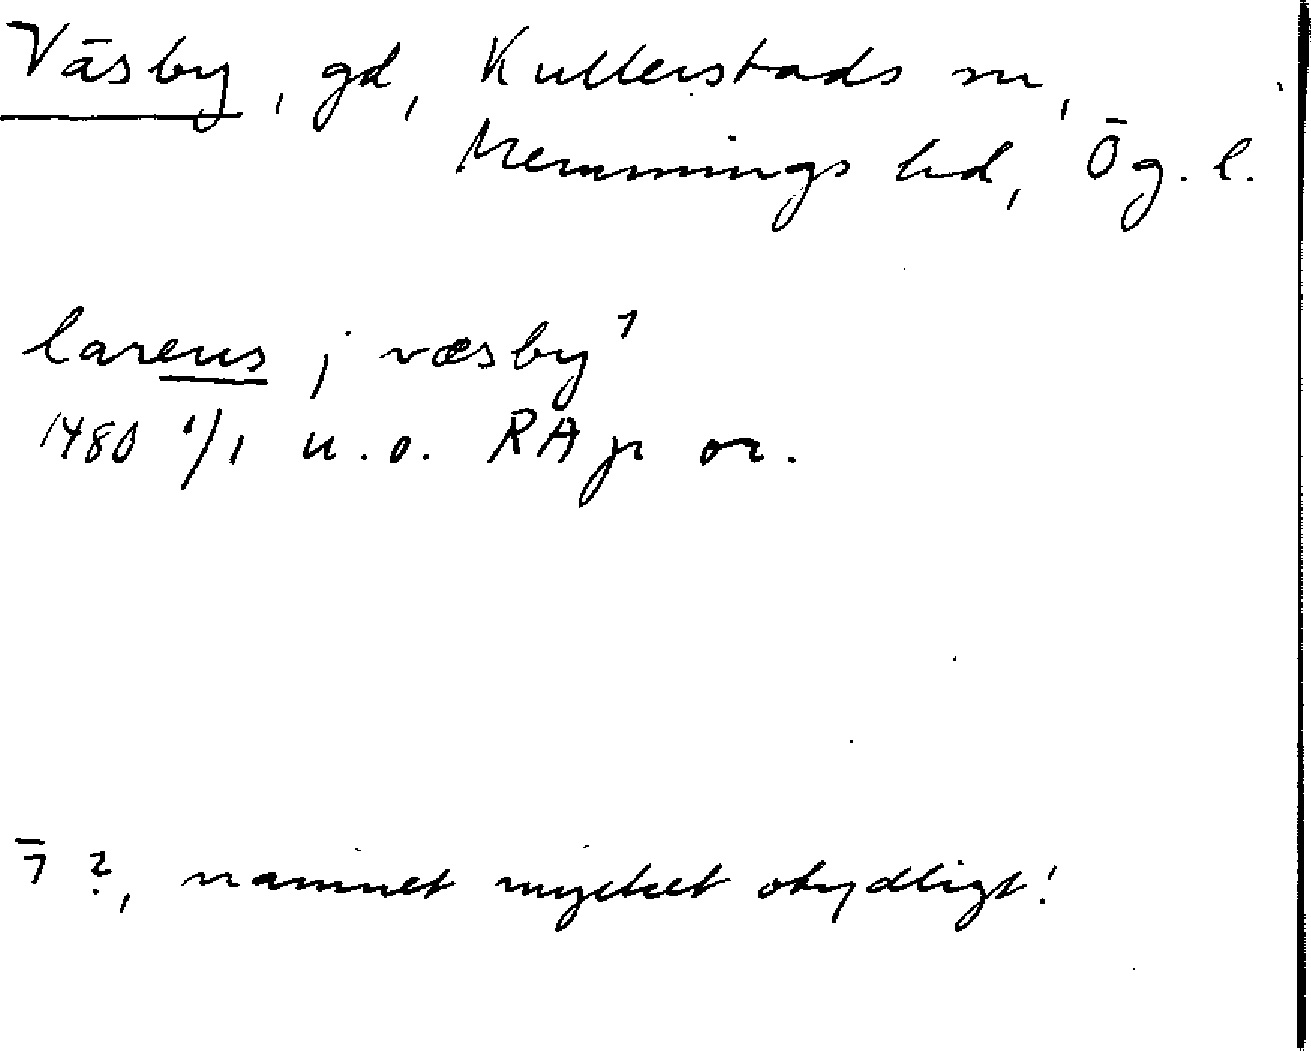 Väsby, gd, Kullerstads sn,
Memmings hd, Ög. l.
larens j væsby 1
1480 1/1 u.o. RAp or.
1 ?, namnet mycket otydligt!